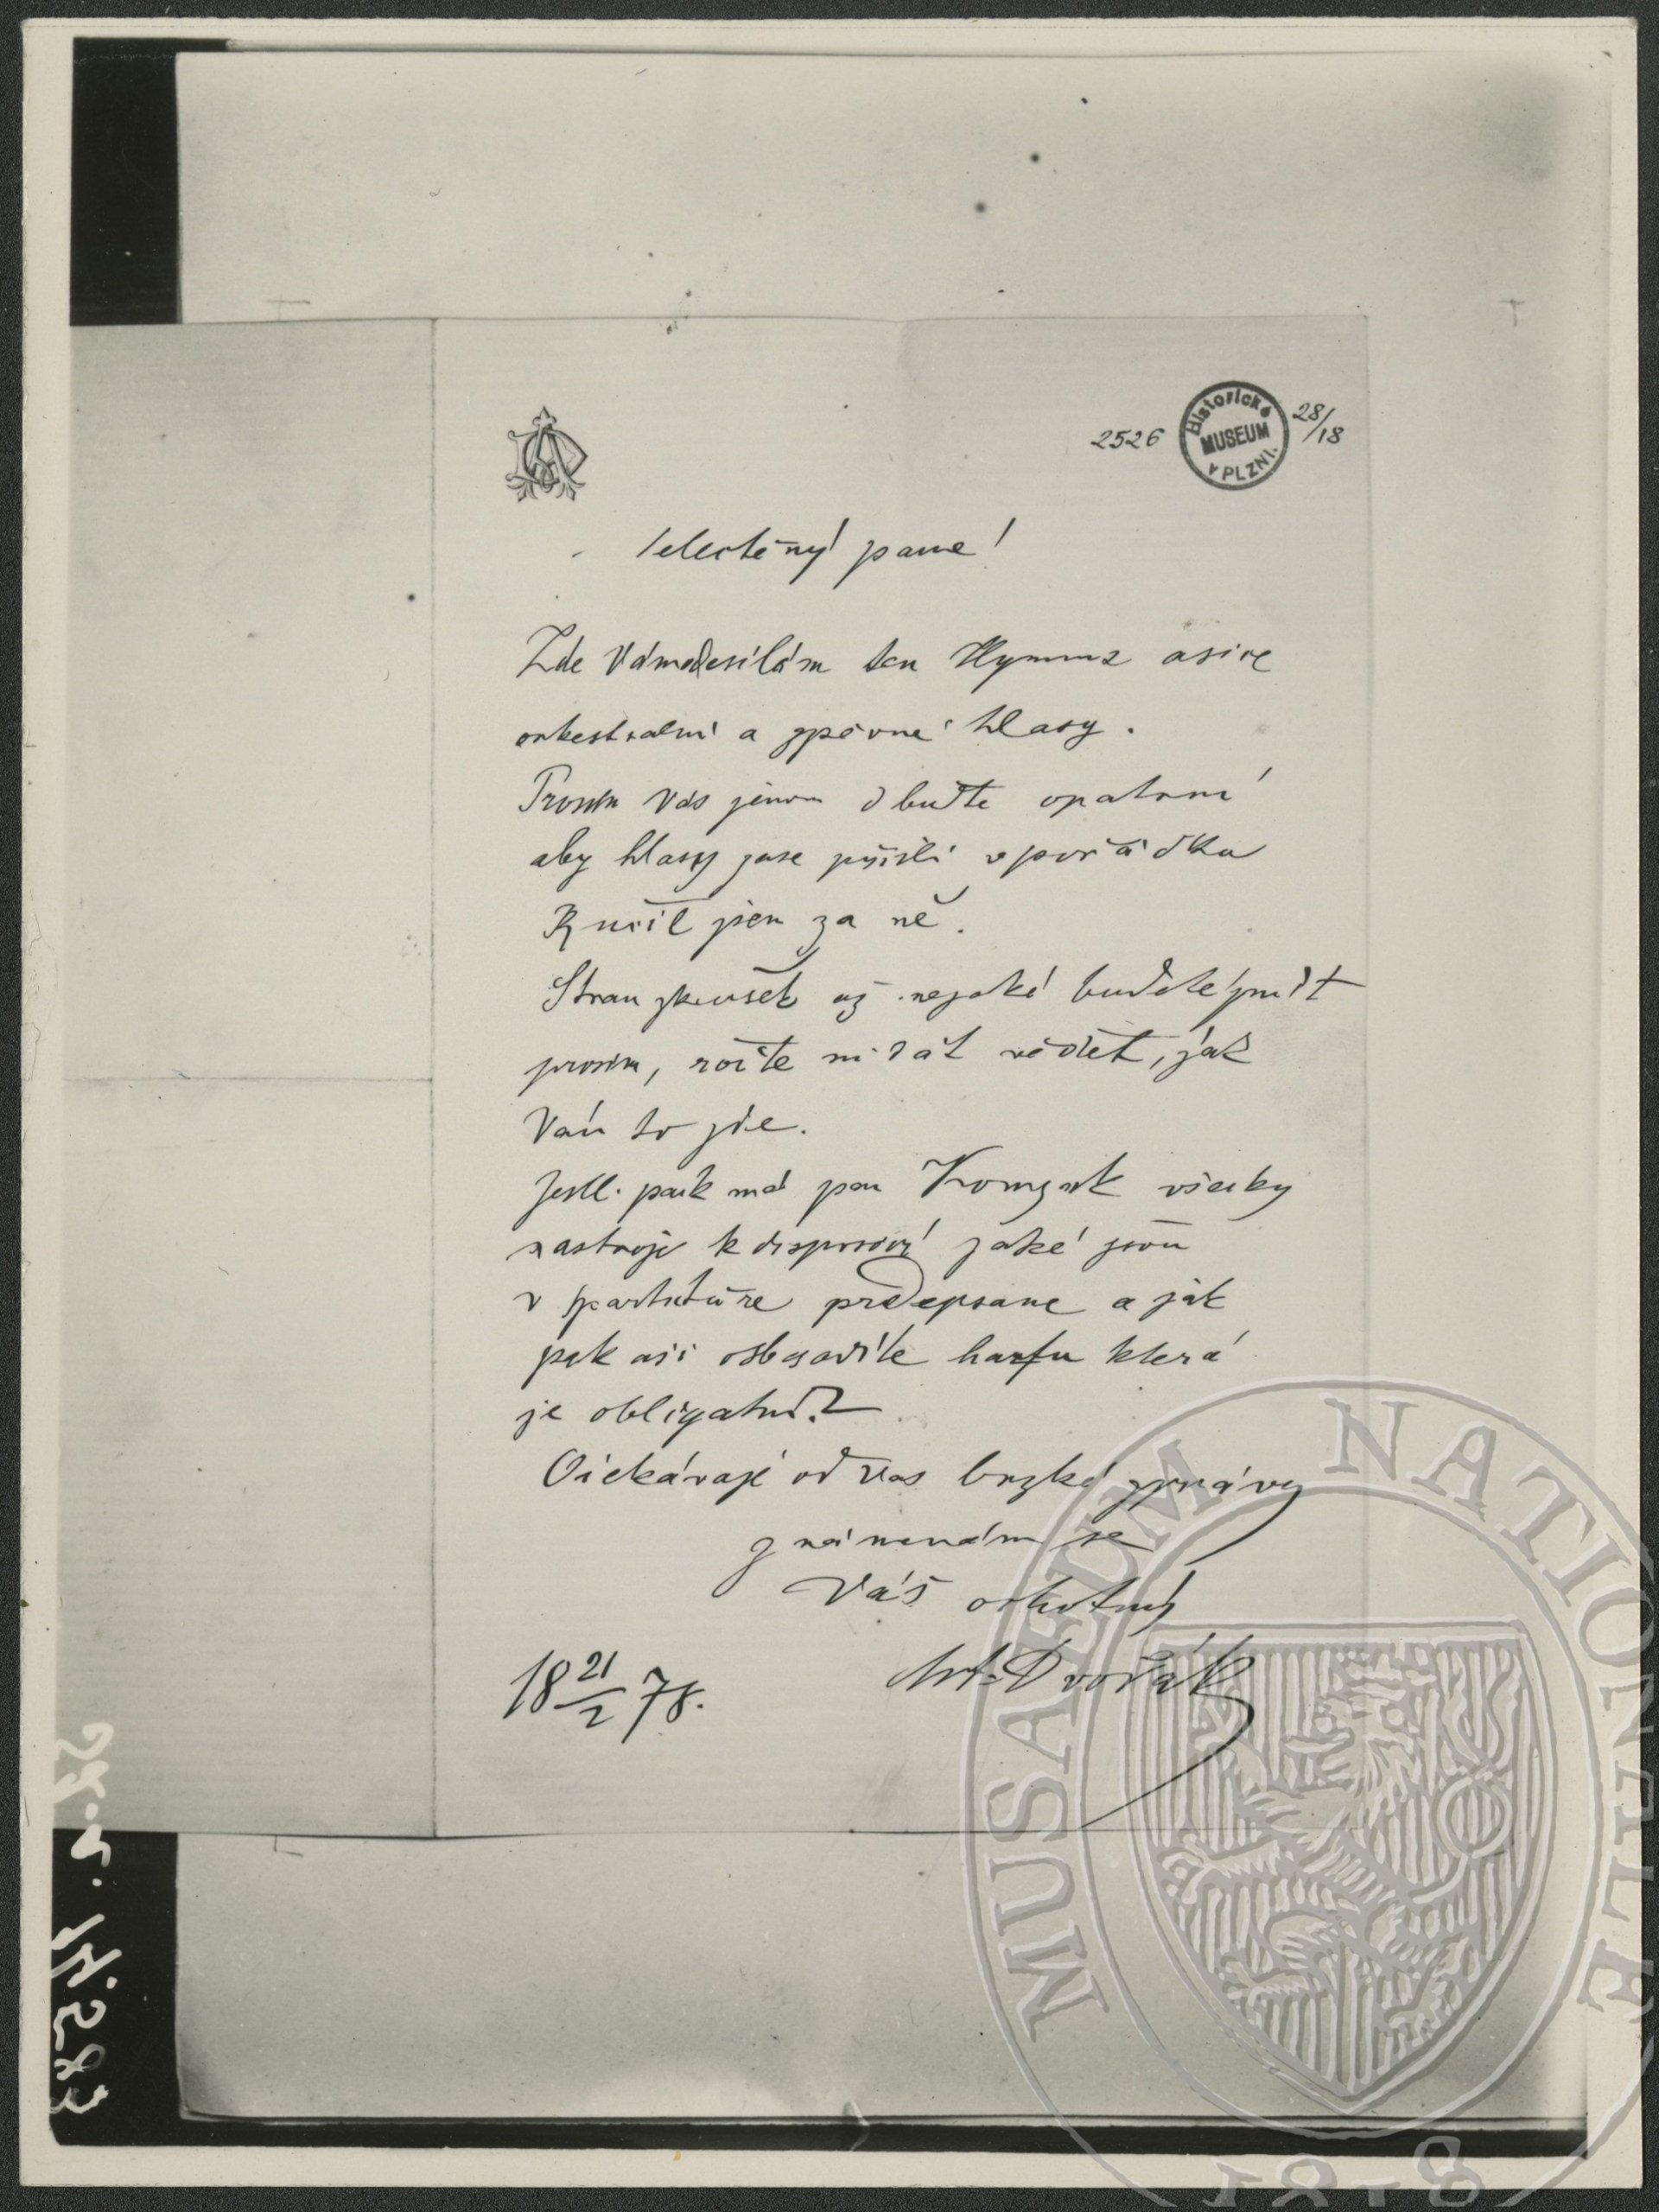 2526 Historické MUSEUM V PLZNI. 28/18
Velectěný pane!
Zde Vám odesílám ten Hymnus a sice
orkestralní a zpěvné hlasy.
Prosím Vás jenom buďte opatrní
aby hlasy zase přišli v pořádku
Ručil jsem za ně.
Stran zkoušek až nejaké budete mít
prosím, račte mi dát vědět, jak
Vám to jde.
Jestli pak má pan Komzak všecky
nastroje k disposici jaké jsou
v partituře předepsane a jak
pak asi odbavíte harfu která
je obligatní?
Očekávaje od Vas brzké zprávy
znamenám se
Váš ochotný
Ant. Dvořák
18 21/2 78.
MUSAEUM NATIONALE
1818